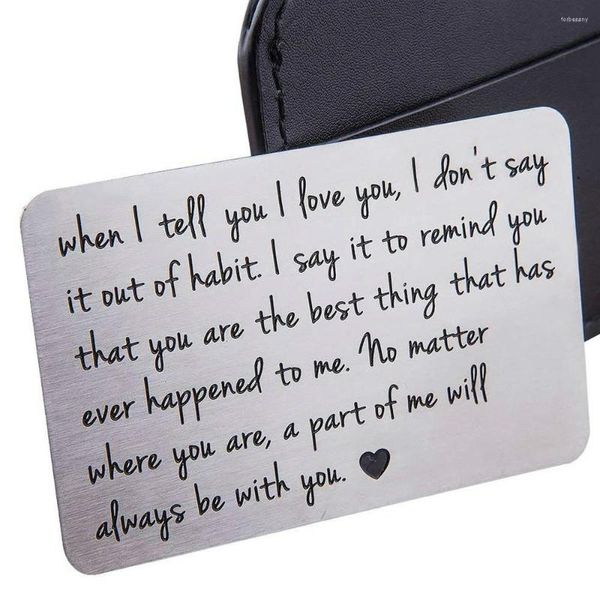 forbeauty
when I tell you I love you, I don't say
it out of habit. I say it to remind you
that you are the best thing that has
ever happened to me. No matter
where you are, a part of me will
always be with you. ♥